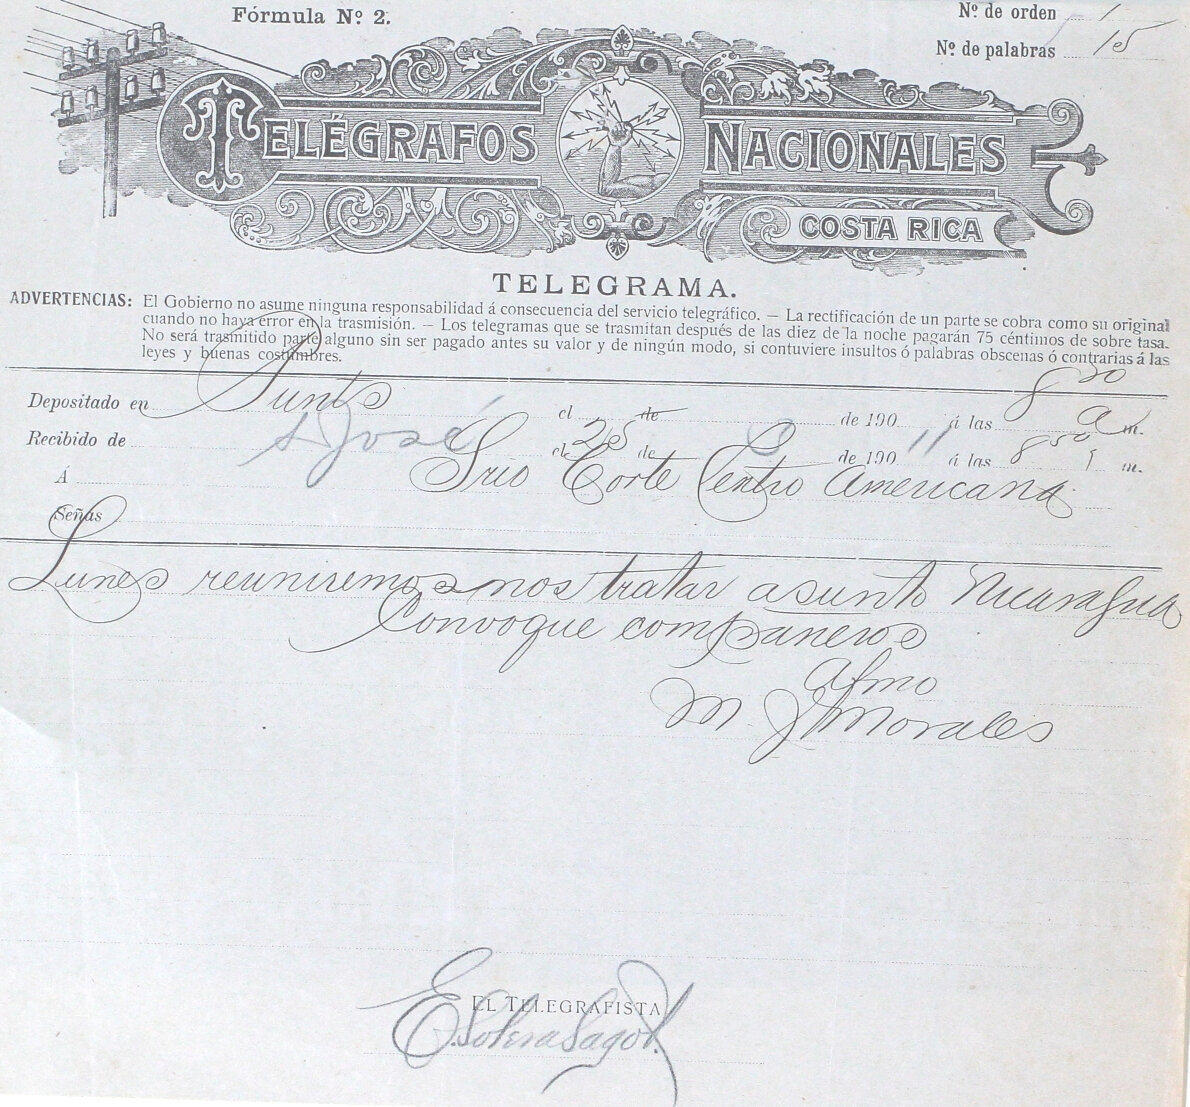 Fórmula Nº 2.
Nº de orden 1
Nº de palabras 15
TELÉGRAFOS NACIONALES
COSTA RICA
TELEGRAMA.
ADVERTENCIAS: El Gobierno no asume ninguna responsabilidad á consecuencia del servicio telegráfico. — La rectificación de un parte se cobra como su original
cuando no haya error en la trasmisión. — Los telegramas que se trasmitan después de las diez de la noche pagarán 75 céntimos de sobre tasa.
No será trasmitido parte alguno sin ser pagado antes su valor y de ningún modo, si contuviere insultos ó palabras obscenas ó contrarias á las
leyes y buenas costumbres.
Depositado en el de de 190 á las 8 a m.
Recibido de S José el 25 de de 190 11 á las 8 50 m.
Á Srio Corte Centro Americana
Señas
Lunes reuniremosnos tratar asunto Nicaragua
Convoque compañeros
Afmo
M J Morales
EL TELEGRAFISTA